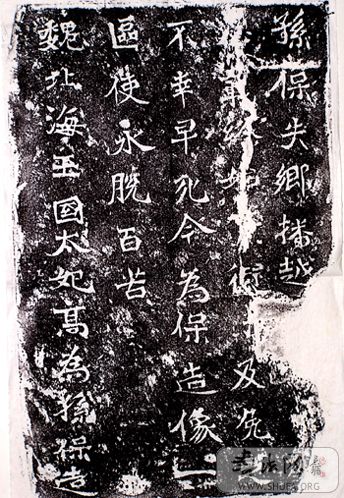 孫保失鄉播越
及
不幸早死今為保造像一
區使永脫百苦
魏北海王國太妃高為孫保造
书法网
WWW.SHUFA.ORG